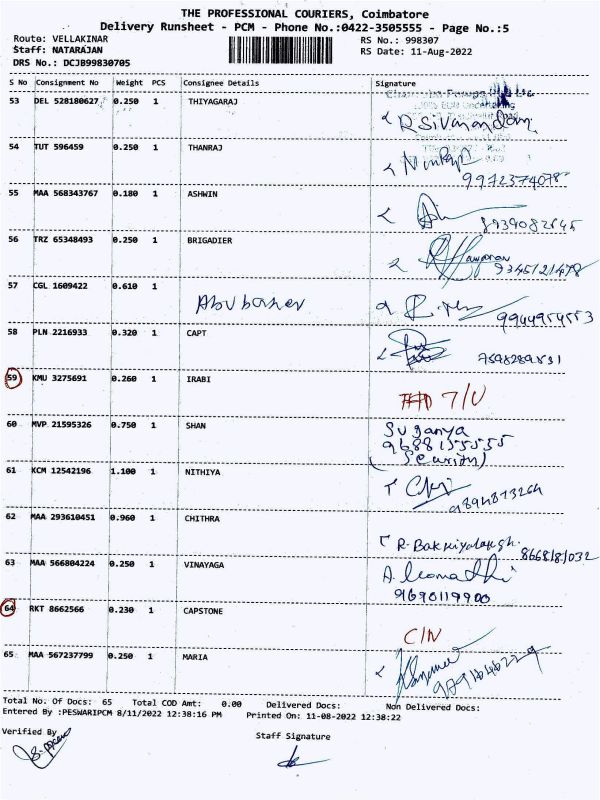 THE PROFESSIONAL COURIERS, Coimbatore
Delivery Runsheet - PCM - Phone No.:0422-3505555 - Page No.:5
Route: VELLAKINAR RS No.: 998307
Staff: NATARAJAN RS Date: 11-Aug-2022
DRS No.: DCJB99830705
S No Consignment No Weight PCS Consignee Details Signature
53 DEL 528180627 0.250 1 THIYAGARAJ
R Sivanandam
54 TUT 596459 0.250 1 THANRAJ
9972374078
55 MAA 568343767 0.180 1 ASHWIN
8939082645
56 TRZ 65348493 0.250 1 BRIGADIER
9345121478
57 CGL 1609422 0.610 1
Abubaker 9944954553
58 PLN 2216933 0.320 1 CAPT
7598289531
59 KMU 3275691 0.260 1 IRABI
7/U
60 MVP 21595326 0.750 1 SHAN
Suganya
9688155555
(Security)
61 KCM 12542196 1.100 1 NITHIYA
9894873264
62 MAA 293610451 0.960 1 CHITHRA
8668181032
63 MAA 566804224 0.250 1 VINAYAGA
9690119900
64 RKT 8662566 0.230 1 CAPSTONE
C/N
65 MAA 567237799 0.250 1 MARIA
Total No. Of Docs: 65 Total COD Amt: 0.00 Delivered Docs: Non Delivered Docs:
Entered By :PESWARIPCM 8/11/2022 12:38:16 PM Printed On: 11-08-2022 12:38:22
Verified By Staff Signature